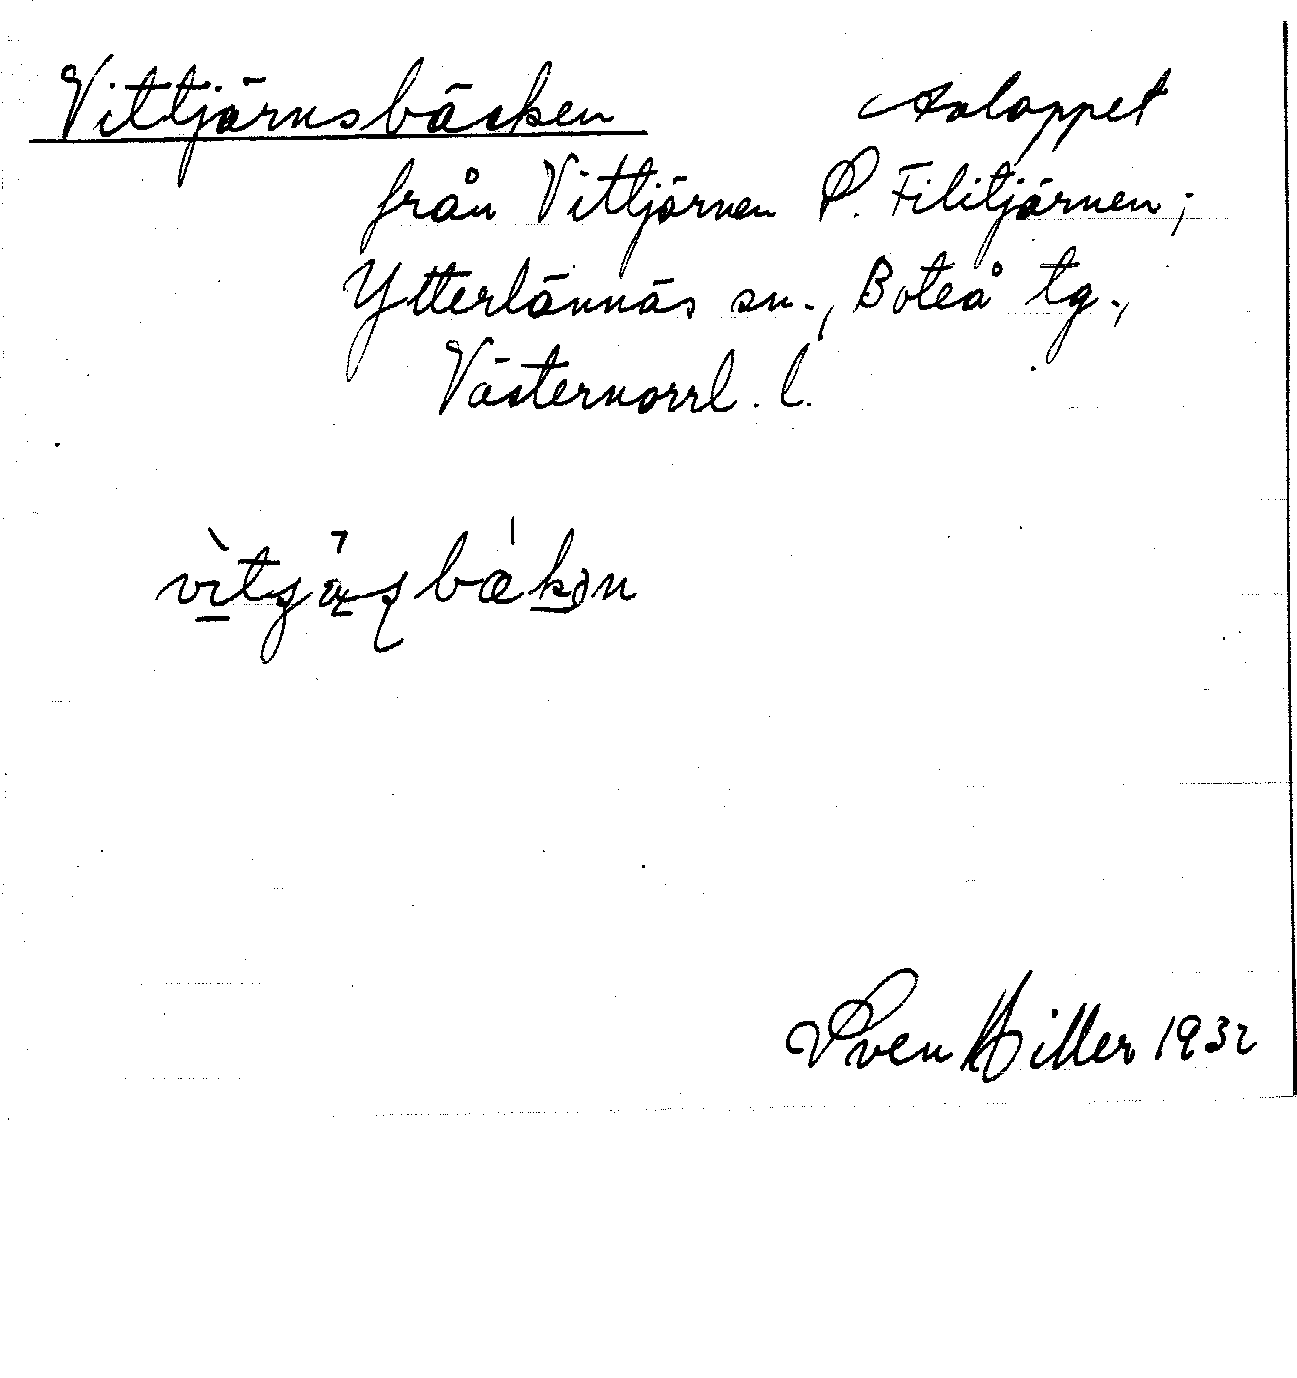 Vittjärnsbäcken Avloppet
från Vittjärnen S. Filitjärnen;
Ytterlännäs sn., Boteå tg.,
Västernorrl. l.
Sven Hiller 1932